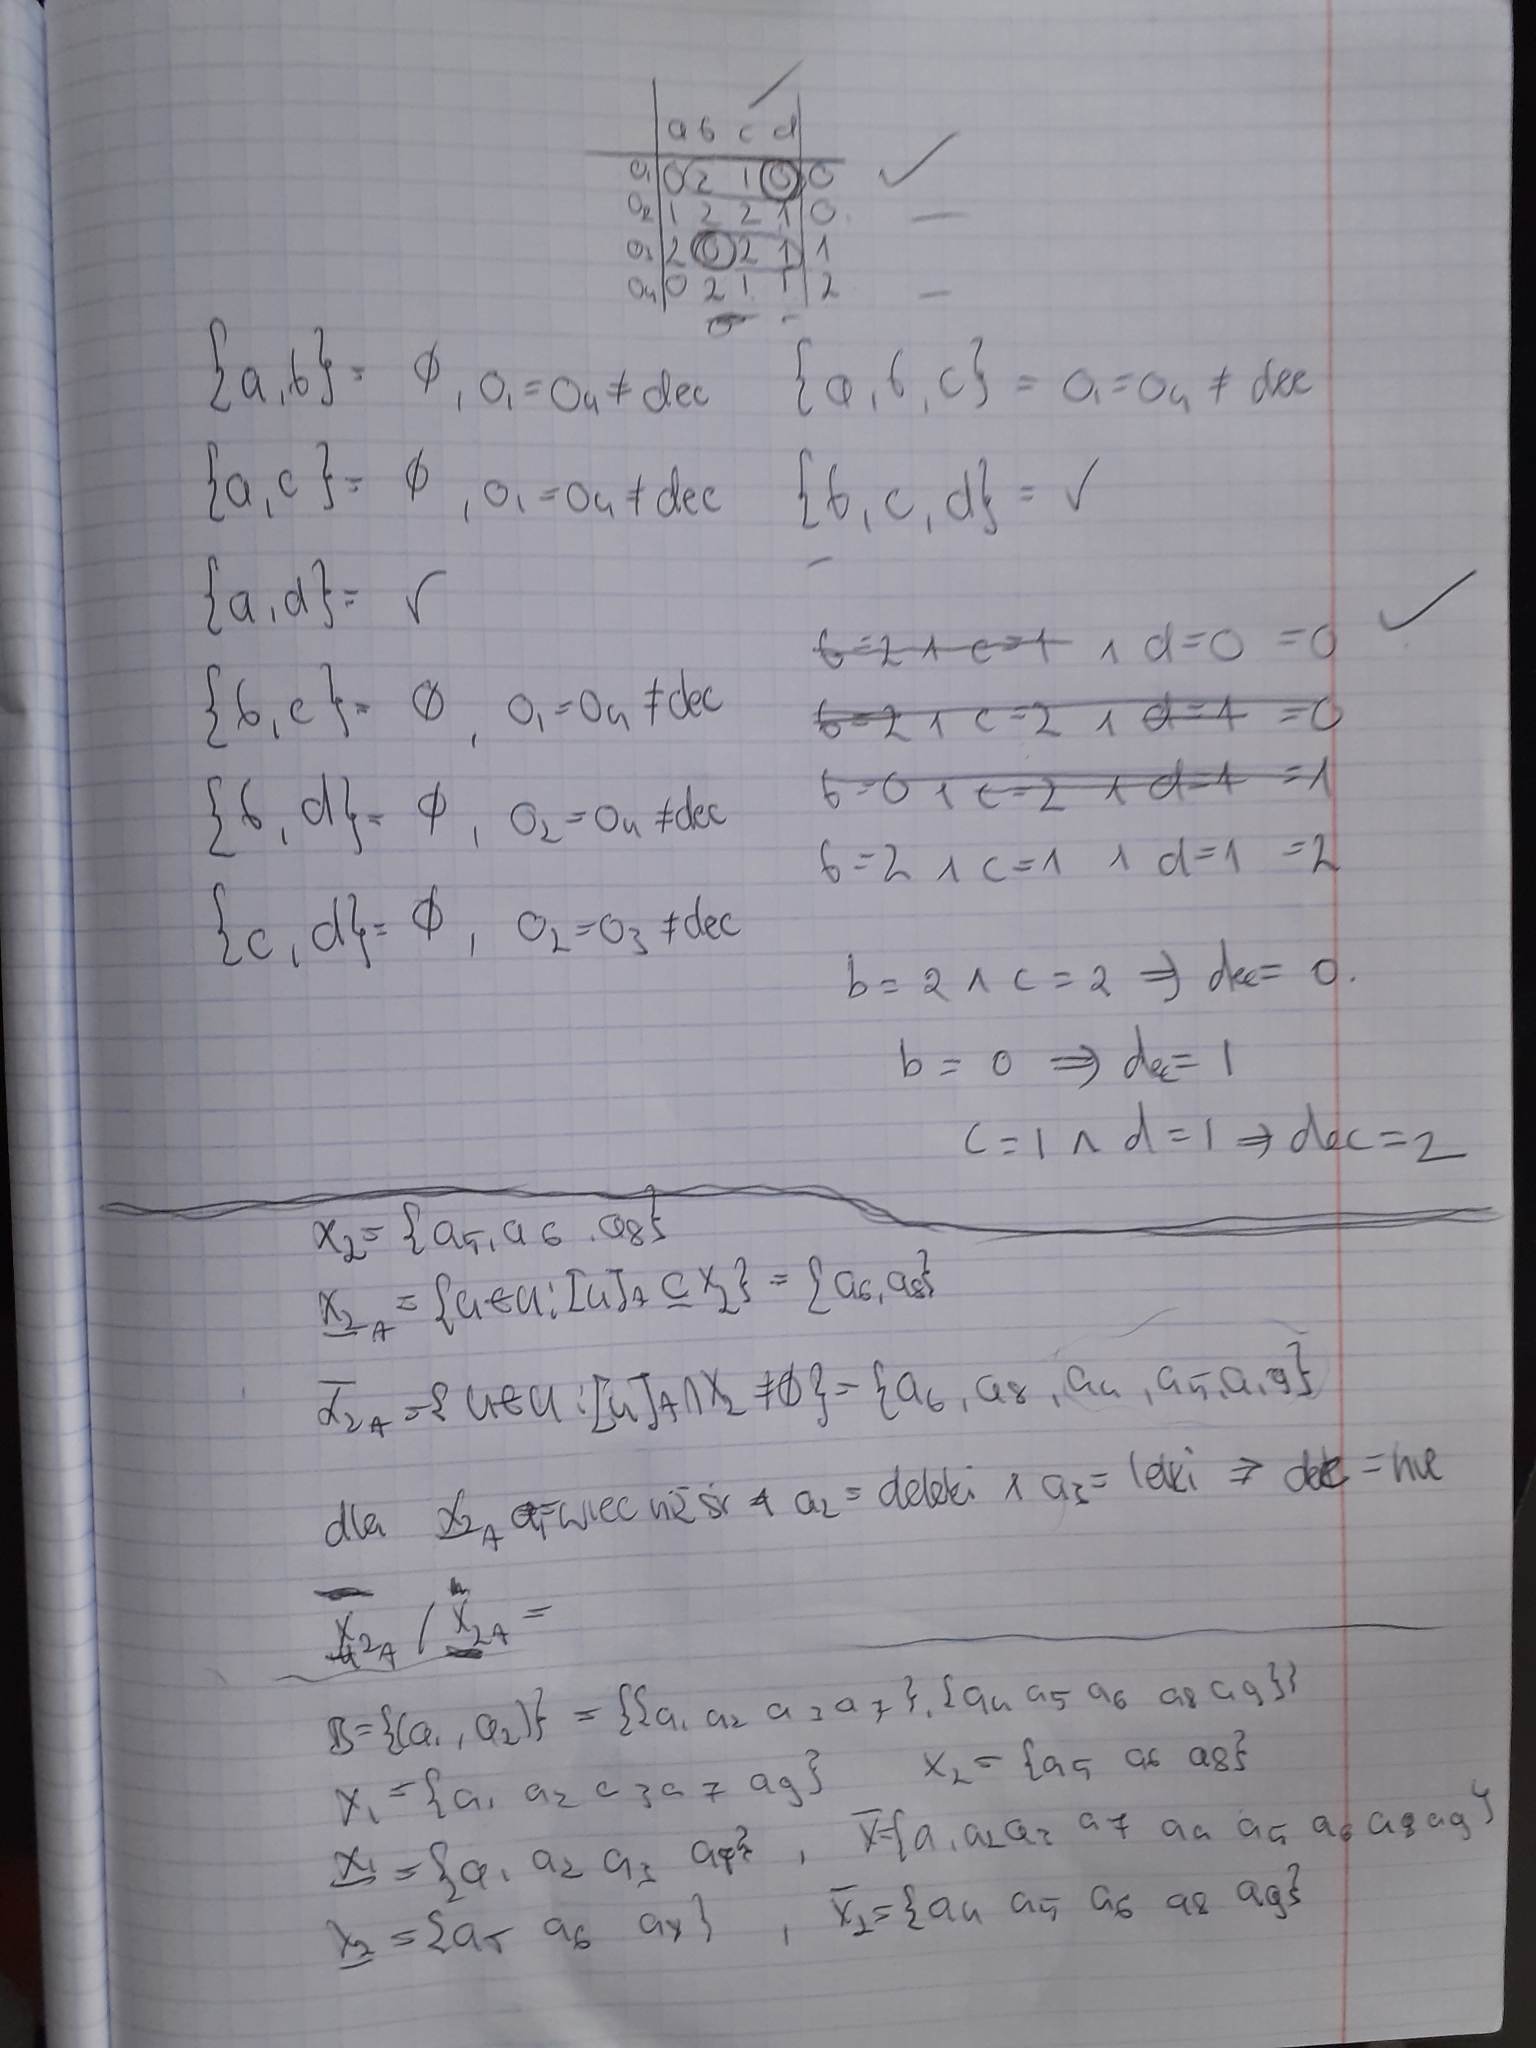 a b c d
o₁ 0 2 1 0 0 ✓
o₂ 1 2 2 1 0 –
o₃ 2 0 2 1 1
o₄ 0 2 1 1 2 –
{a,b} = ∅, o₁=o₄≠dec
{a,b,c} = o₁=o₄≠dec
{a,c} = ∅, o₁=o₄≠dec
{b,c,d} = ✓
{a,d} = ✓
{b,c} = ∅, o₁=o₄≠dec
{b,d} = ∅, o₂=o₄≠dec
{c,d} = ∅, o₂=o₃≠dec
b=2 ∧ c=1 ∧ d=0 =0 ✓
b=2 ∧ c=2 ∧ d=1 =0
b=0 ∧ c=2 ∧ d=1 =1
b=2 ∧ c=1 ∧ d=1 =2
b=2 ∧ c=2 ⇒ dec=0.
b=0 ⇒ dec=1
c=1 ∧ d=1 ⇒ dec=2
X₂={a₅,a₆,a₈}
X̲₂A={u∈U:[u]A⊆X₂}={a₆,a₈}
X̅₂A={u∈U:[u]A∩X₂≠∅}={a₆,a₈,a₄,a₅,a,9}
dla X̲₂A a₁=wiec niż śr ∧ a₂=daleki ∧ a₃=lekki ⇒ dec=nie
X̅₂A / X̲₂A =
B={(a₁,a₂)} = {{a₁ a₂ a₃ a₇},{a₄ a₅ a₆ a₈ a₉}}
X₁={a₁ a₂ a₃ a₇ a₉} X₂={a₅ a₆ a₈}
X̲₁={a₁ a₂ a₃ a₇}, X̅={a₁ a₂ a₃ a₇ a₄ a₅ a₆ a₈ a₉}
X̲₂={a₅ a₆ a₈}, X̅₂={a₄ a₅ a₆ a₈ a₉}